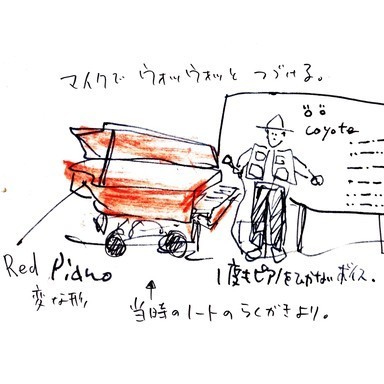 マイクで ウオッウオッと つづける。
coyote
Red Piano
変な形
1度もピアノをひかないボイス.
当時のノートのらくがきより。